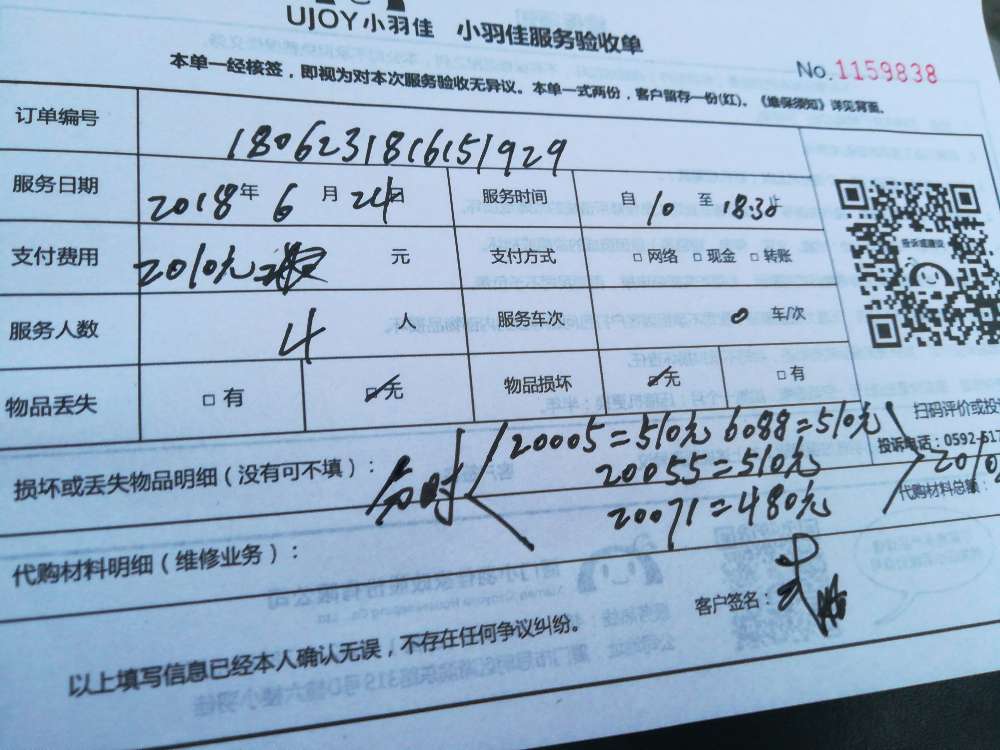 UJOY小羽佳 小羽佳服务验收单
No.1159838
本单一经核签，即视为对本次服务验收无异议。本单一式两份，客户留存一份(红)。《维保须知》详见背面。
订单编号 1806231816151929
服务日期 2018年 6 月 24日 服务时间 自 10 至 18:30止
支付费用 2010元 元 支付方式 □网络 □现金 □转账
投诉或建议
服务人数 4 人 服务车次 0 车/次
物品丢失 □有 ☑无 物品损坏 ☑无 □有
扫码评价或投
投诉电话：0592-517
损坏或丢失物品明细（没有可不填）：
分时 20005=510元 6088=510元
20055=510元
20071=480元
2010
代购材料总额：
代购材料明细（维修业务）：
客户签名：
以上填写信息已经本人确认无误，不存在任何争议纠纷。